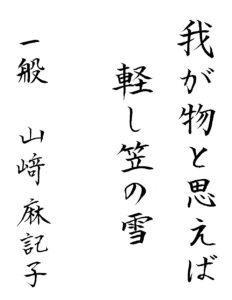 我が物と思えば
軽し笠の雪
一般 山﨑麻記子